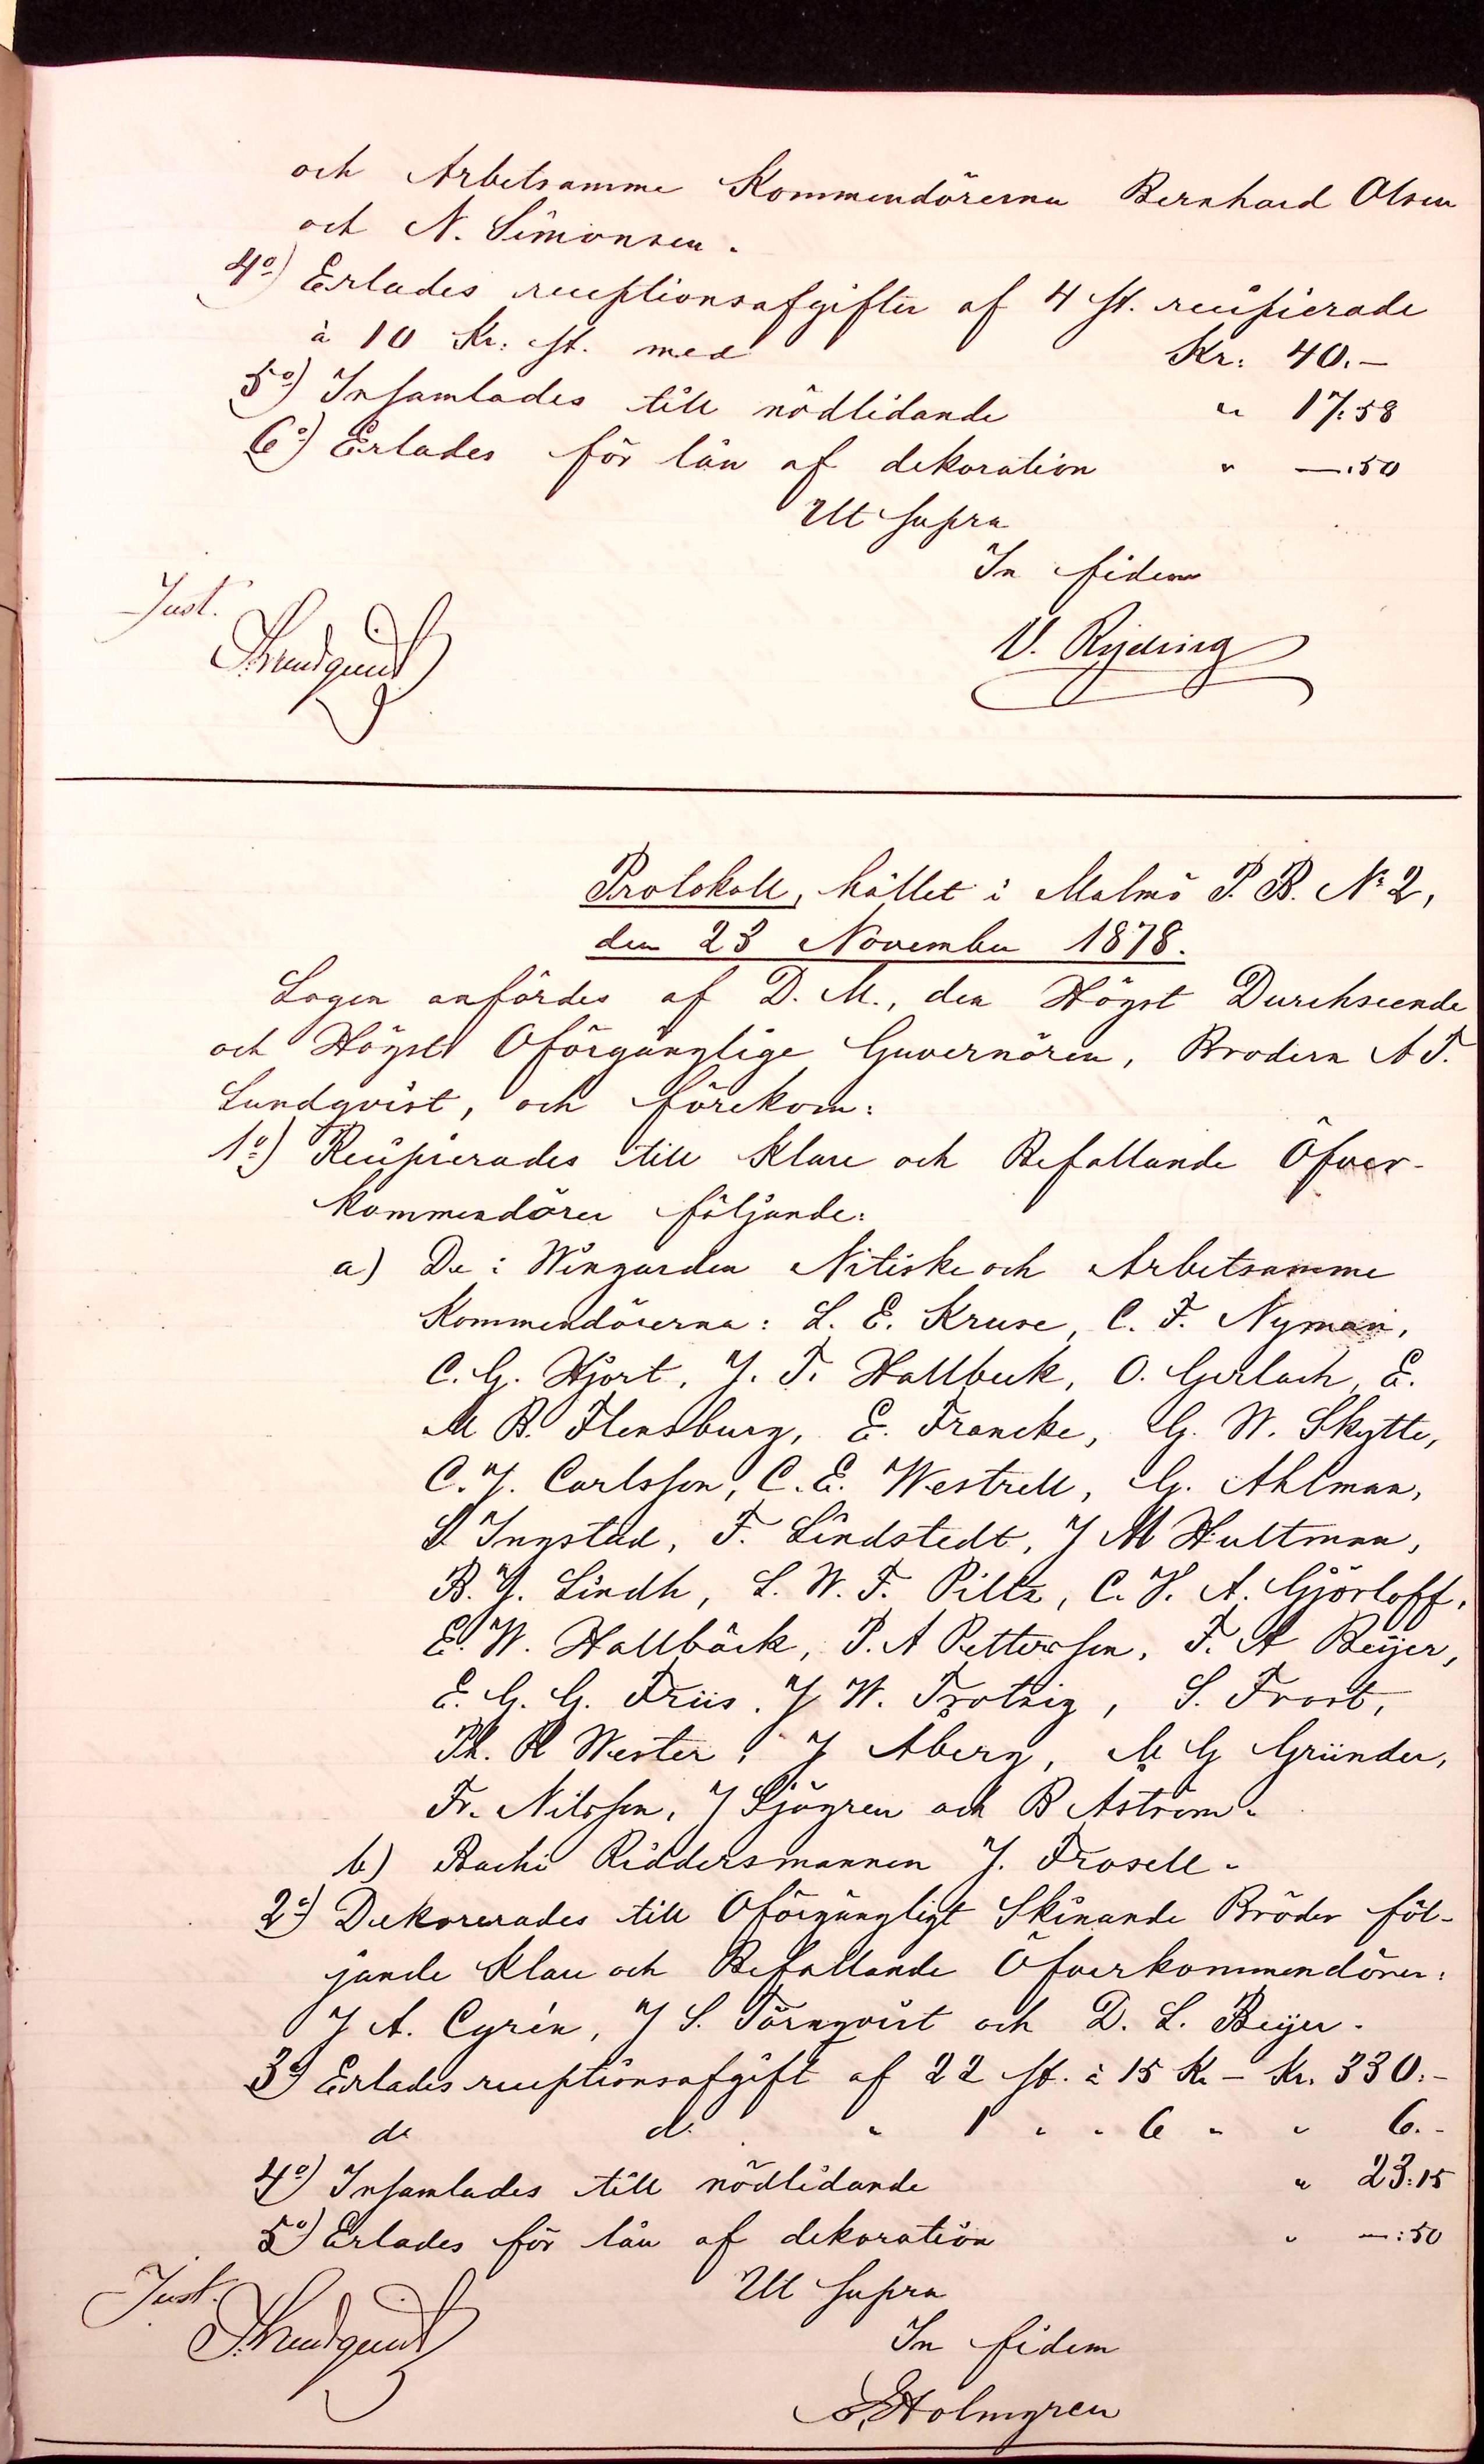 och Arbetsamme Kommendörerna Bernhard Olsen
och N. Simonsen.
4º) Erlades receptionsafgifter af 4 st. recipierade
à 10 Kr. st. med Kr: 40.—
5º) Insamlades till nödlidande " 17:58
6º) Erlades för lån af dekoration " —:50
Ut supra
In fidem
Just.
V. Ryding
Lundquist
Protokoll, hållet i Malmö P. B. Nº 2,
den 23 November 1878.
Logen anfördes af D. M., den Högst Durchseende
och Högst Oförgänglige Guvernören, Brodern A F.
Lundqvist, och förekom:
1º) Recipierades till Klare och Befallande Öfver-
kommendörer följande:
a) De i Wingården Nitiske och Arbetsamme
Kommendörerna: L. E. Kruse, C. F. Nyman,
C. G. Hjort, J. T. Hallbeck, O. Gerlach, E.
M B. Flensburg, E. Francke, G. W. Skytte,
C. J. Carlsson, C. E. Westrell, G. Ahlman,
S Ingstad, F. Lindstedt, J M Hultman,
B. J. Lindh, L. W. F. Piltz, C. H. A. Gjörloff,
E. W. Hallbäck, P. A Pettersson, F. A Beijer,
E. G. G. Friis, J W. Trotzig, S. Frost,
Ph. R Wester, J Åberg, M G Gründer,
Fr. Nilsson, J Sjögren och B Åström.
b) Bachi Riddersmannen J. Frosell.
2º) Dekorerades till Oförgängligt Skinande Bröder föl-
jande Klare och Befallande Öfverkommendörer:
J A. Cyrén, J S. Törnqvist och D. L. Beijer.
3º) Erlades receptionsafgift af 22 st. à 15 Kr — Kr. 330.—
do do " 1 " " 6 " " 6.-
4º) Insamlades till nödlidande " 23:15
5º) Erlades för lån af dekoration " —:50
Just.
Ut supra
Lundquist
In fidem
Holmgren